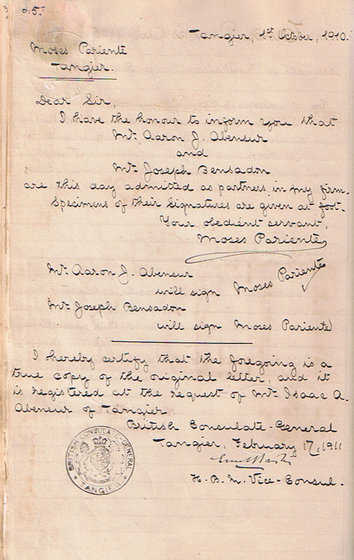 Tangier, 1st October, 1910.
Moses Pariente
Tangier.
Dear Sir,
I have the honour to inform you that
Mr. Aaron J. Abensur
and
Mr. Joseph Bensadon
are this day admitted as partners in my firm.
Specimens of their Signatures are given at foot.
Your obedient servant,
Moses Pariente
Mr. Aaron J. Abensur
will sign Moses Pariente
Mr. Joseph Bensadon
will sign Moses Pariente
I hereby certify that the foregoing is a
true copy of the original letter, and it
is registered at the request of Mr. Isaac A.
Abensur of Tangier.
British Consulate-General
Tangier, February 17, 1911
H. B. M. Vice-Consul.
BRITISH CONSULATE GENERAL
TANGIER